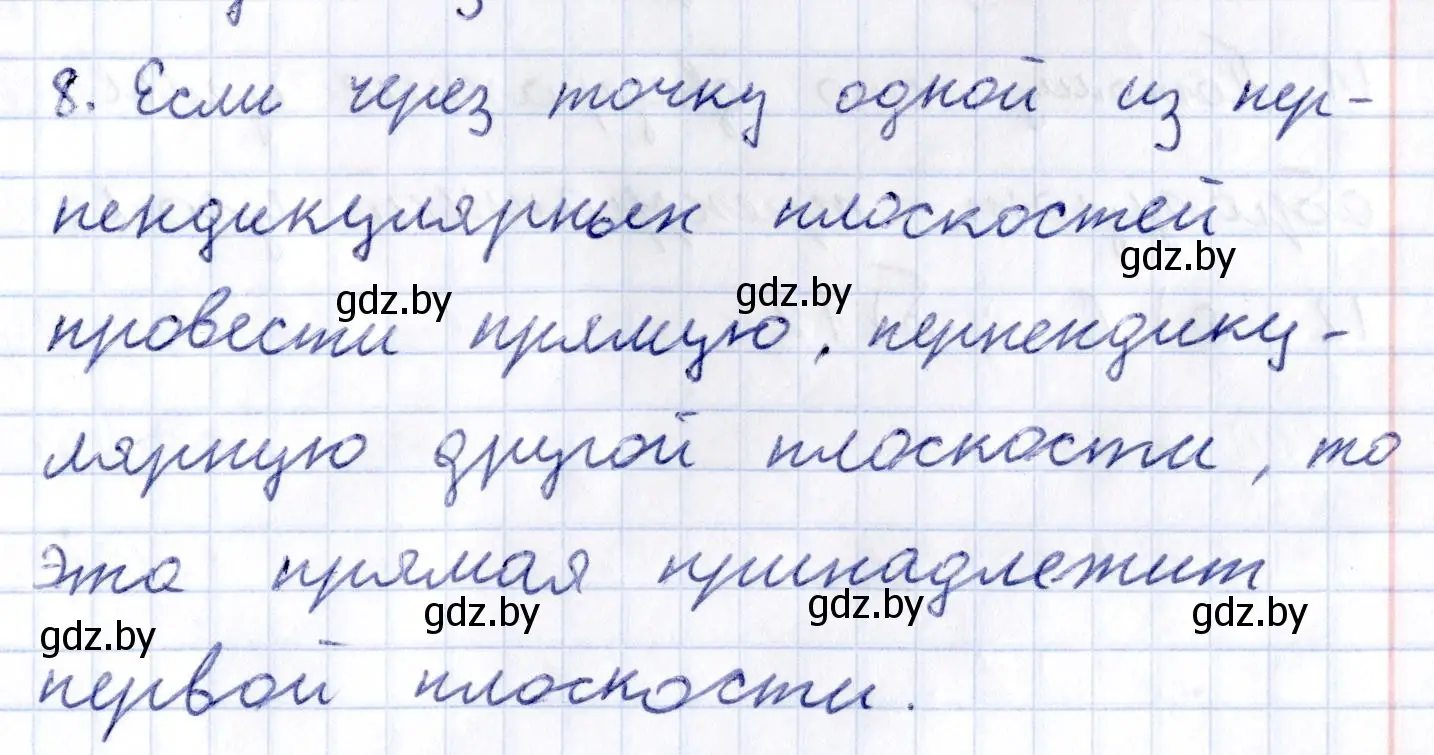 8. Если через точку одной из пер-
пендикулярных плоскостей
gdz.by
gdz.by gdz.by
провести прямую, перпендику-
лярную другой плоскости, то
эта прямая принадлежит
gdz.by gdz.by gdz.by gdz.by
первой плоскости.